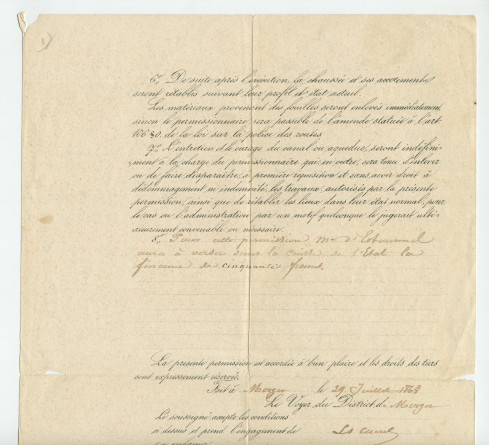 6.° De suite après l'exécution, la chaussée et ses accotements
seront rétablis suivant leur profil et état actuel.
Les matériaux provenant des fouilles seront enlevés immédiatement,
sinon le permissionnaire sera passible de l'amende statuée à l'art.
de la loi sur la police des routes.
7.° L'entretien et le curage du canal ou aqueduc, seront indéfini-
ment à la charge du permissionnaire qui, en outre, sera tenu d'enlever
ou de faire disparaître, à première réquisition et sans avoir droit à
dédommagement ou indemnité, les travaux autorisés par la présente
permission, ainsi que de rétablir les lieux dans leur état normal, pour
le cas où l'administration par un motif quelconque le jugerait ulté-
rieurement convenable ou nécessaire.
8. Pour cette permission Mr d'
aura à verser dans la Caisse de l'Etat la
finance de cinquante francs.
La présente permission est accordée à bien plaire et les droits des tiers
sont expressément réservés.
Fait à Morges le 29 Juillet 1863
Le Voyer du District de Morges
Le soussigné accepte les conditions
ci dessus et prend l'engagement de